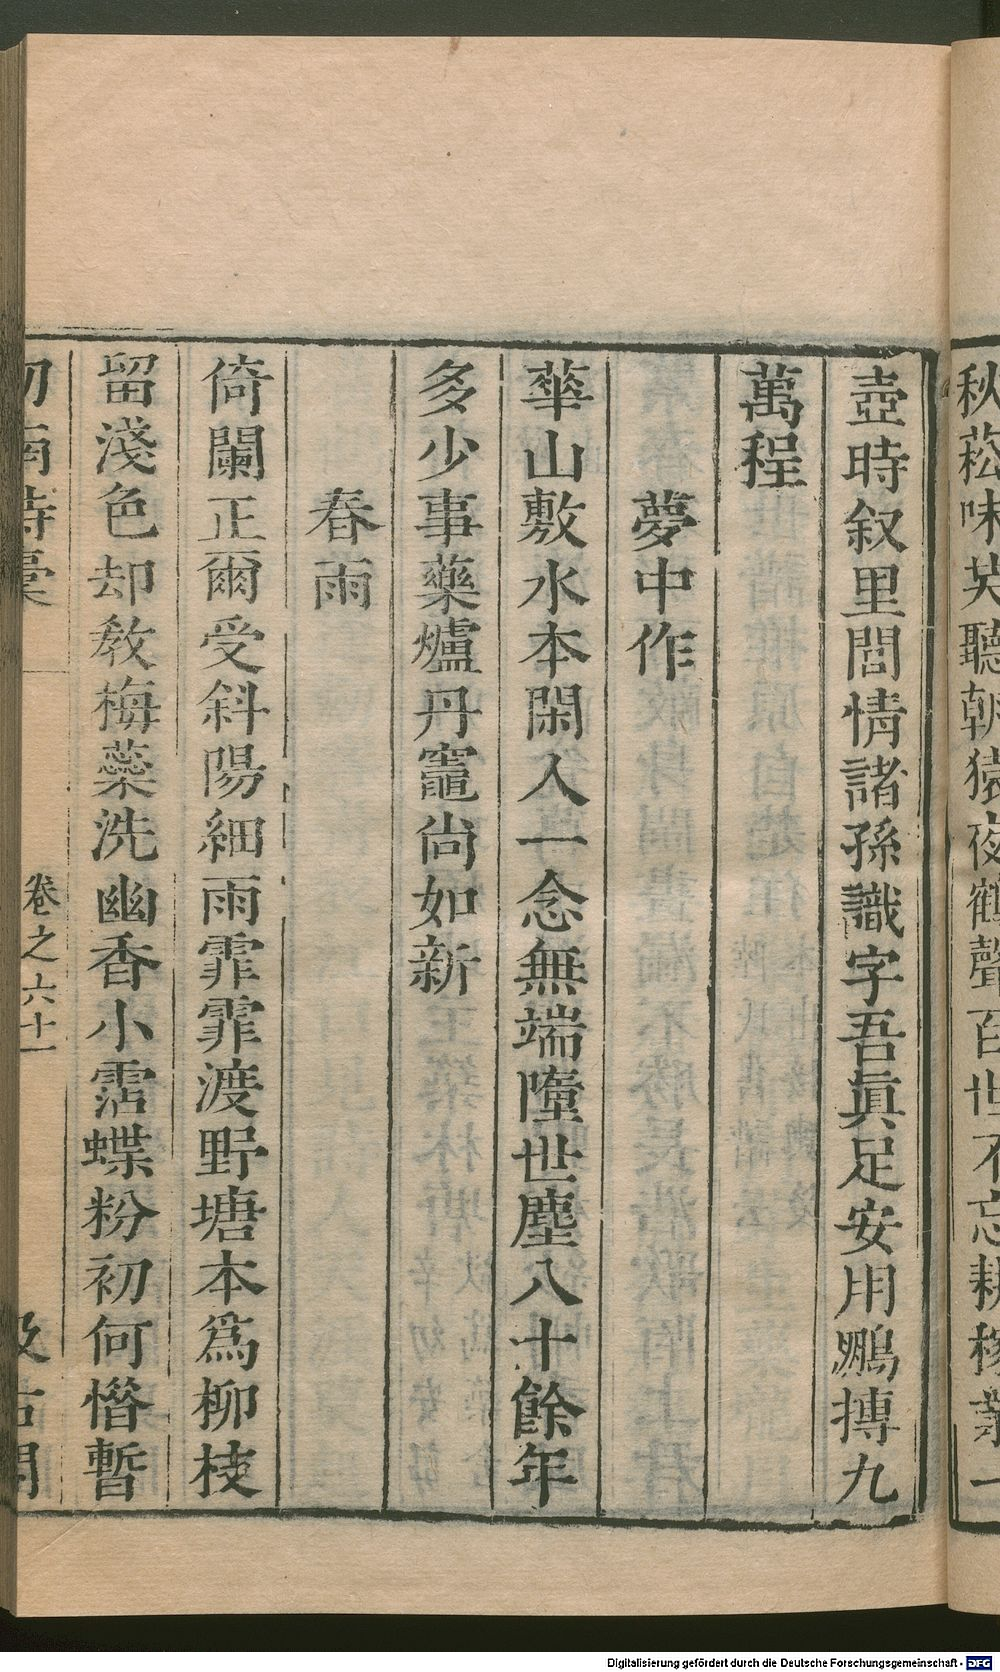 秋菘味美聽朝猿夜鶴聲百世不忘耕稼業一
壺時叙里閭情諸孫識字吾眞足安用鵬摶九
萬程
夢中作
華山敷水本閑人一念無端墮世塵八十餘年
多少事藥爐丹竈尙如新
春雨
倚闌正爾受斜陽細雨霏霏渡野塘本爲柳枝
留淺色却敎梅蘂洗幽香小霑蝶粉初何惜暫
劒南詩稾
卷之六十一
汲古閣
Digitalisierung gefördert durch die Deutsche Forschungsgemeinschaft - DFG